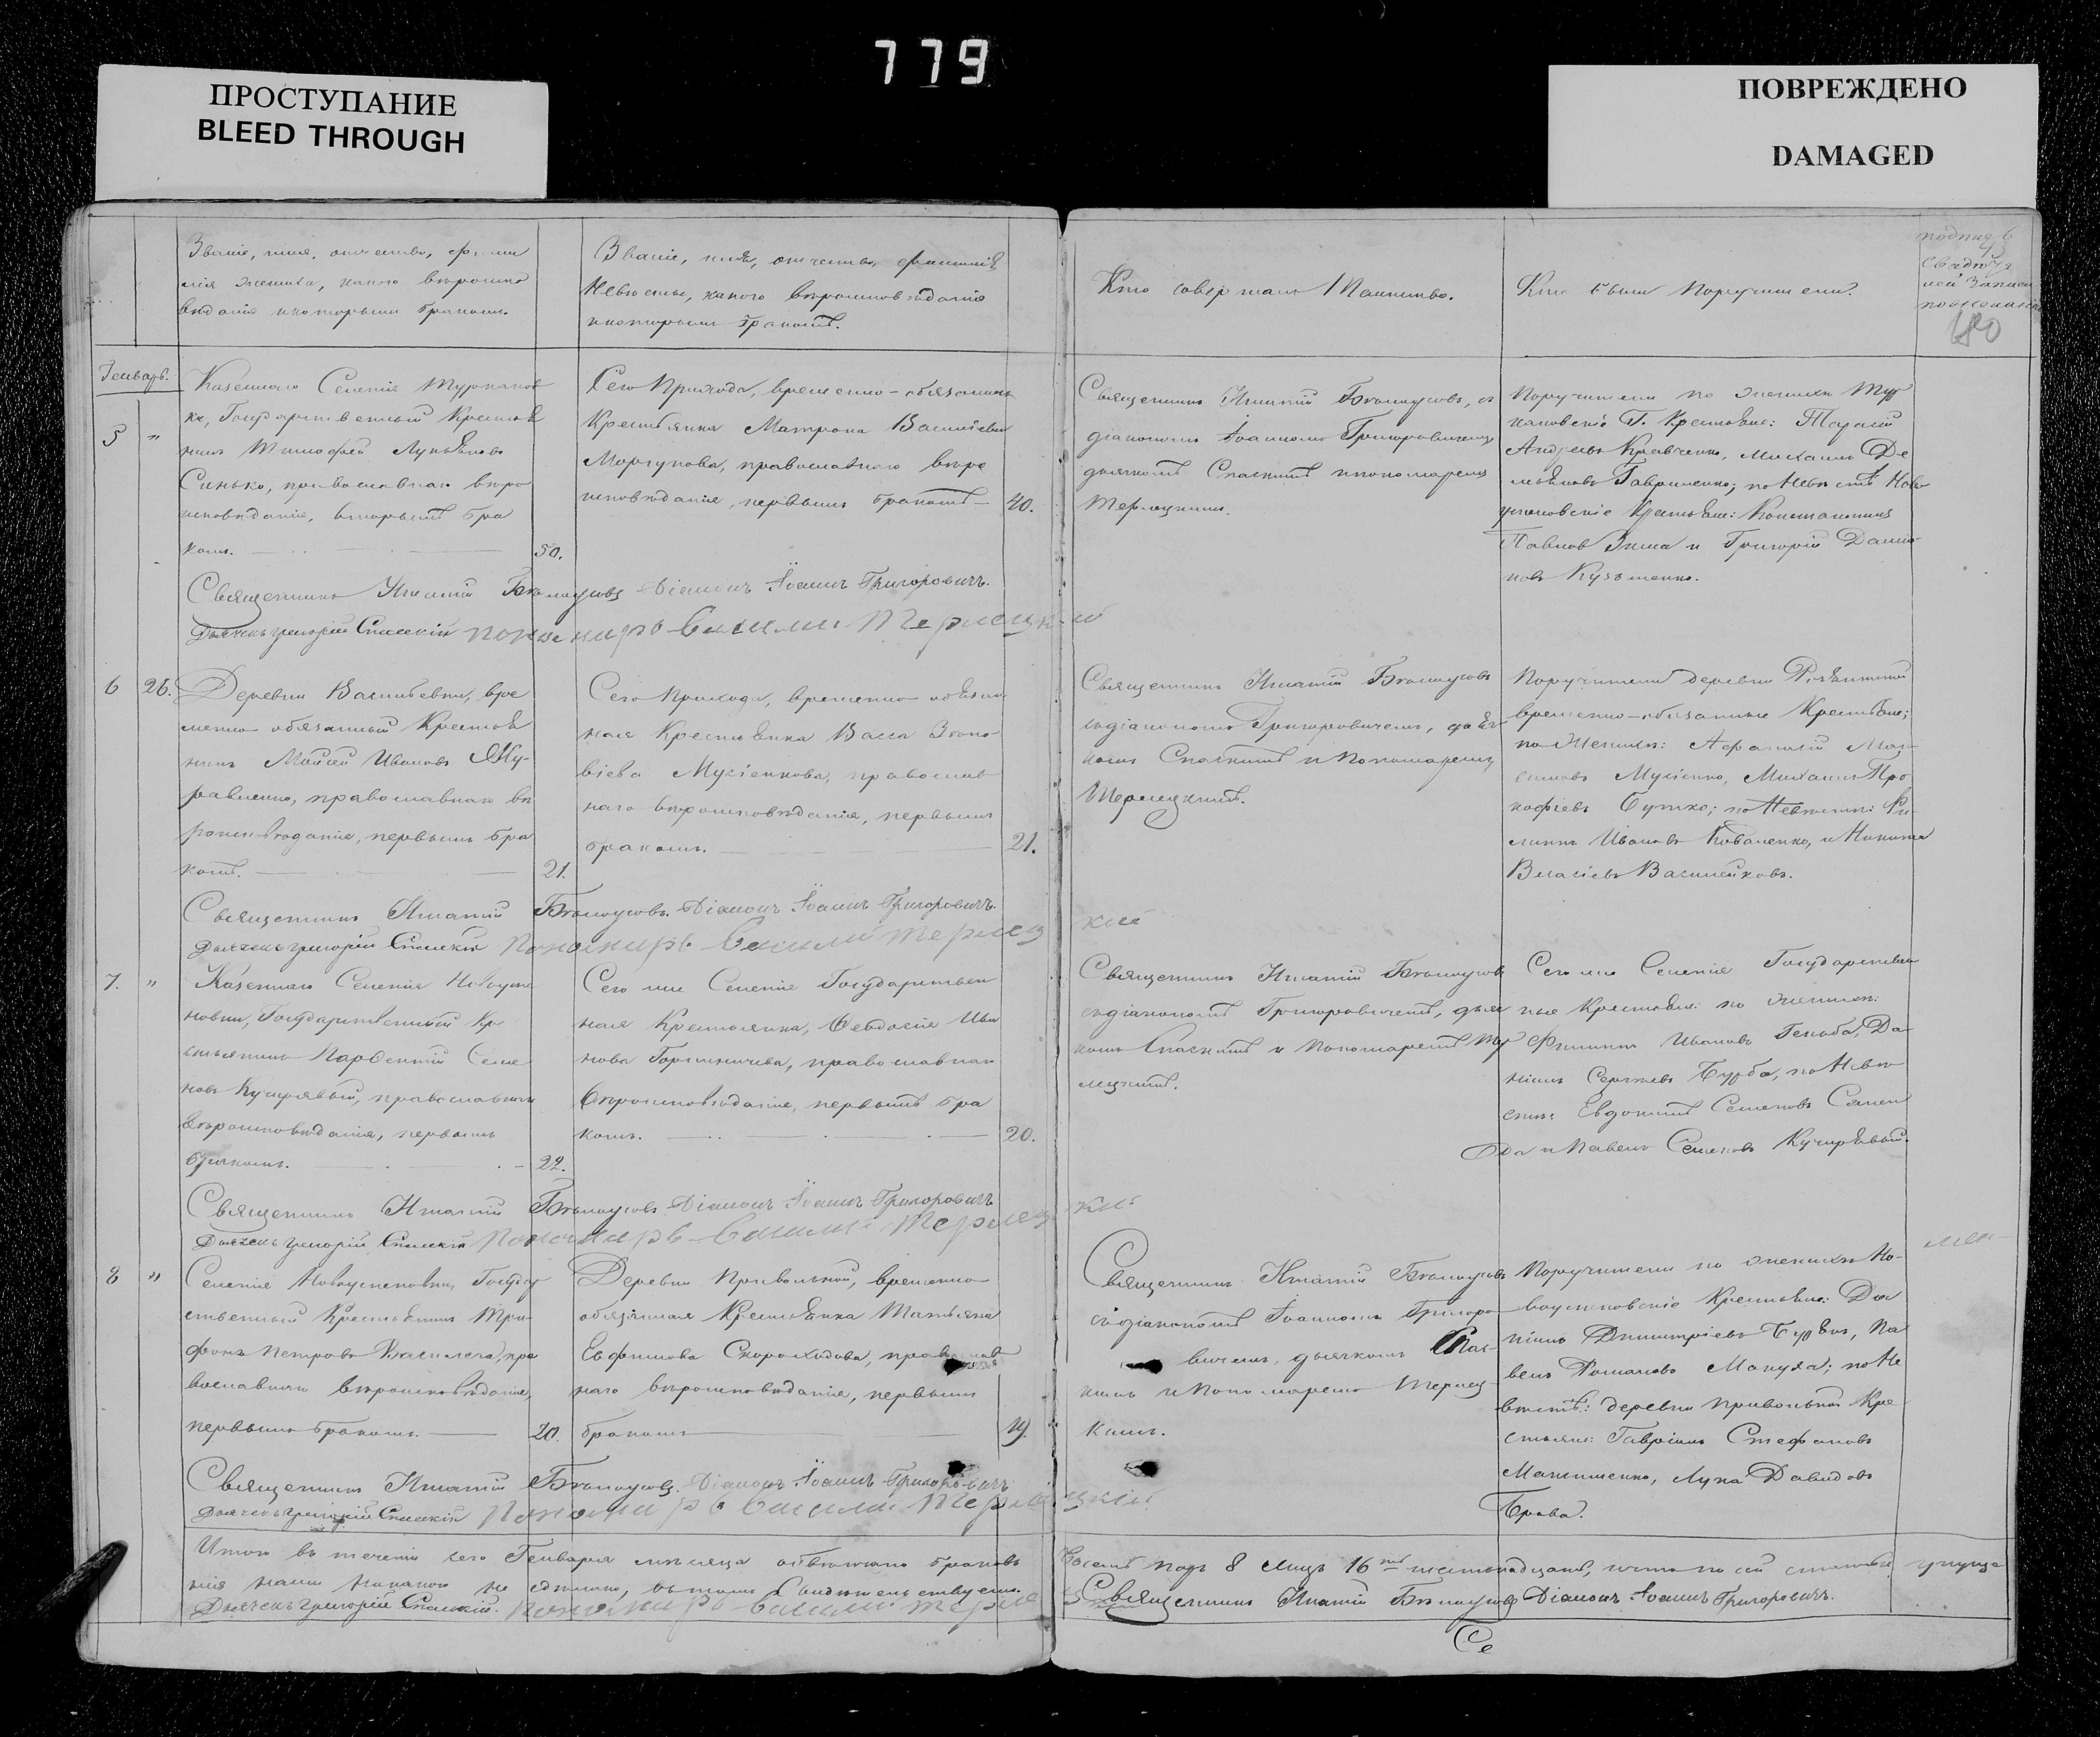 779
ПРОСТУПАНИЕ
BLEED THROUGH
ПОВРЕЖДЕНО
DAMAGED
Званіе, имя, отчество, фами
лія жениха, какого вѣроиспо
вѣданія и которымъ бракомъ.
Званіе, имя, отчество, фамилія
Невѣсты, какого вѣроисповѣданія
и которымъ бракомъ.
Кто совершалъ Таинство.
Кто были Поручители?
подпись
свидѣте
лей записи
по желанію
480
Генварь.
5 "
Казеннаго Селенія Туркенов
ки, Государственный Крестья
нинъ Тимофей Лукьяновъ
Синько, православнаго вѣро
исповѣданія, вторымъ бра
комъ. 50.
Сего Прихода, временно-обязанная
Крестьянка Матрона Васильева
Моргунова, православнаго вѣро
исповѣданія, первымъ бракомъ 40.
Священникъ Игнатій Бѣлоусовъ, съ
діакономъ Іоанномъ Григоровичемъ
дьячкомъ Спаскимъ и пономаремъ
Терлецкимъ.
Поручители по женихѣ Тур
кеновскіе Г. Крестьяне: Тарасій
Андреевъ Кравченко, Михаилъ Де
мьяновъ Гавриленко; по Невѣстѣ Ново
успеновскіе Крестьяне: Константинъ
Павловъ Зима и Григорій Дани
ловъ Кузьменко.
Священникъ Игнатій Бѣлоусовъ Діаконъ Іоаннъ Григоровичъ.
Дьячекъ Григорій Спаскій Пономарь Василій Терлецкій
6 26.
Деревни Васильевки, вре
менно-обязанный Крестья
нинъ Мойсей Ивановъ Жу-
равленко, православнаго вѣ
роисповѣданія, первымъ бра
комъ. 21.
Сего Прихода, временно обязан
ная Крестьянка Васса Зино-
віева Мусіенкова, православ
наго вѣроисповѣданія, первымъ
бракомъ. 21.
Священникъ Игнатій Бѣлоусовъ
съ діакономъ Григоровичемъ, дьяч-
комъ Спаскимъ и Пономаремъ
Терлецкимъ.
Поручители деревни
временно-обязанные Крестьяне;
по Женихѣ: Афанасій Мак-
симовъ Мусіенко, Михаилъ Про
кофіевъ Бутко; по Невѣстѣ: Фи
липпъ Ивановъ Коваленко, и Никита
Власіевъ Василейковъ.
Священникъ Игнатій Бѣлоусовъ. Діаконъ Іоаннъ Григоровичъ.
Дьячекъ Григорій Спаскій Пономарь Василій Терлецкій
7. "
Казеннаго Селенія Новоуспе
новки, Государственный Кре
стьянинъ Парфентій Семе
новъ Кучерявый, православнаго
вѣроисповѣданія, первымъ
бракомъ. 22.
Сего же Селенія Государствен
ная Крестьянка, Февдосія Ива
нова православнаго
вѣроисповѣданія, первымъ бра
комъ. 20.
Священникъ Игнатій Бѣлоусовъ
съ діакономъ Григоровичемъ, дьяч
комъ Спаскимъ и Пономаремъ Тер
лецкимъ.
Сего же Селенія Государствен
ные Крестьяне: по женихѣ:
Филиппъ Ивановъ Да-
ніилъ Сергѣевъ Бурба, по Невѣ
стѣ: Евдокимъ Семеновъ
и Павелъ Семеновъ Кучерявый.
Священникъ Игнатій Бѣлоусовъ Діаконъ Іоаннъ Григоровичъ
Дьячекъ Григорій Спаскій Пономарь Василій Терлецкій
8 "
Селенія Новоуспеновки, Государ
ственный Крестьянинъ Три-
фонъ Петровъ пра
вославнаго вѣроисповѣданія,
первымъ бракомъ. 20.
Деревни Привольной, временно
обязанная Крестьянка Татьяна
Евфимова Скороходова, православ
наго вѣроисповѣданія, первымъ
бракомъ 19.
Священникъ Игнатій Бѣлоусовъ
съ діакономъ Іоанномъ Григоро
вичемъ, дьячкомъ Спас-
кимъ и Пономаремъ Терлец
кимъ.
Поручители по женихѣ Но-
воуспеновскіе Крестьяне: Да
ніилъ Димитріевъ Па
велъ Романовъ Макуха; по Не
вѣстѣ: деревни Привольной Кре
стьяне: Гавріилъ Стефановъ
Лука Давидовъ
Священникъ Игнатій Бѣлоусовъ. Діаконъ Іоаннъ Григоровичъ
Дьячекъ Григорій Спаскій Пономарь Василій Терлецкій
Итого въ теченіи сего Генваря мѣсяца обвѣнчано браковъ
Восемь паръ 8 лицъ 16
въ томъ Свидѣтельствуемъ.
Священникъ Игнатій Бѣлоусовъ Діаконъ Іоаннъ Григоровичъ.
Дьячекъ Григорій Спаскій. Пономарь Василій Терле
Се